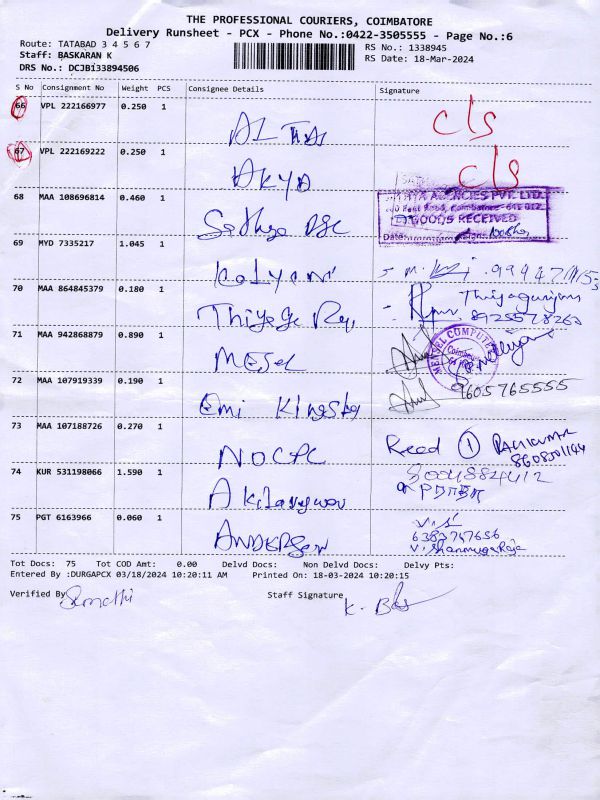 THE PROFESSIONAL COURIERS, COIMBATORE
Delivery Runsheet - PCX - Phone No.:0422-3505555 - Page No.:6
Route: TATABAD 3 4 5 6 7
RS No.: 1338945
Staff: BASKARAN K
RS Date: 18-Mar-2024
DRS No.: DCJBi33894506
S No Consignment No Weight PCS Consignee Details Signature
66 VPL 222166977 0.250 1 cls
67 VPL 222169222 0.250 1 cls
AKYA
AGENCIES PVT. LTD.
68 MAA 108696814 0.460 1 Sathya
GOODS RECEIVED
Date
69 MYD 7335217 1.045 1
Kalyani
70 MAA 864845379 0.180 1 Thiyagarajan
Thiyaga Raj 8925578262
71 MAA 942868879 0.890 1
MENSEL COMPUTE
Coimbatore
72 MAA 107919339 0.190 1 9605765555
Omi Kingsley
73 MAA 107188726 0.270 1 Recd 1
NOCPC 8608501144
74 KUR 531198066 1.590 1 8004884412
75 PGT 6163966 0.060 1 6383757656
ANDERSON V. Shanmugaraja
Tot Docs: 75 Tot COD Amt: 0.00 Delvd Docs: Non Delvd Docs: Delvy Pts:
Entered By :DURGAPCX 03/18/2024 10:20:11 AM Printed On: 18-03-2024 10:20:15
Verified By Staff Signature
K. B